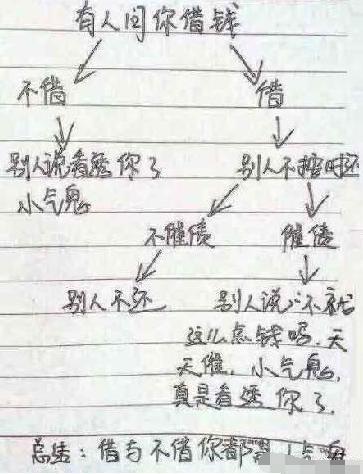 有人问你借钱
不借 借
别人说看透你了 别人不按时还
小气鬼
不催债 催债
别人不还 别人说:不就
这么点钱吗,天
天催,小气鬼,
真是看透你了.
总结:借与不借你都